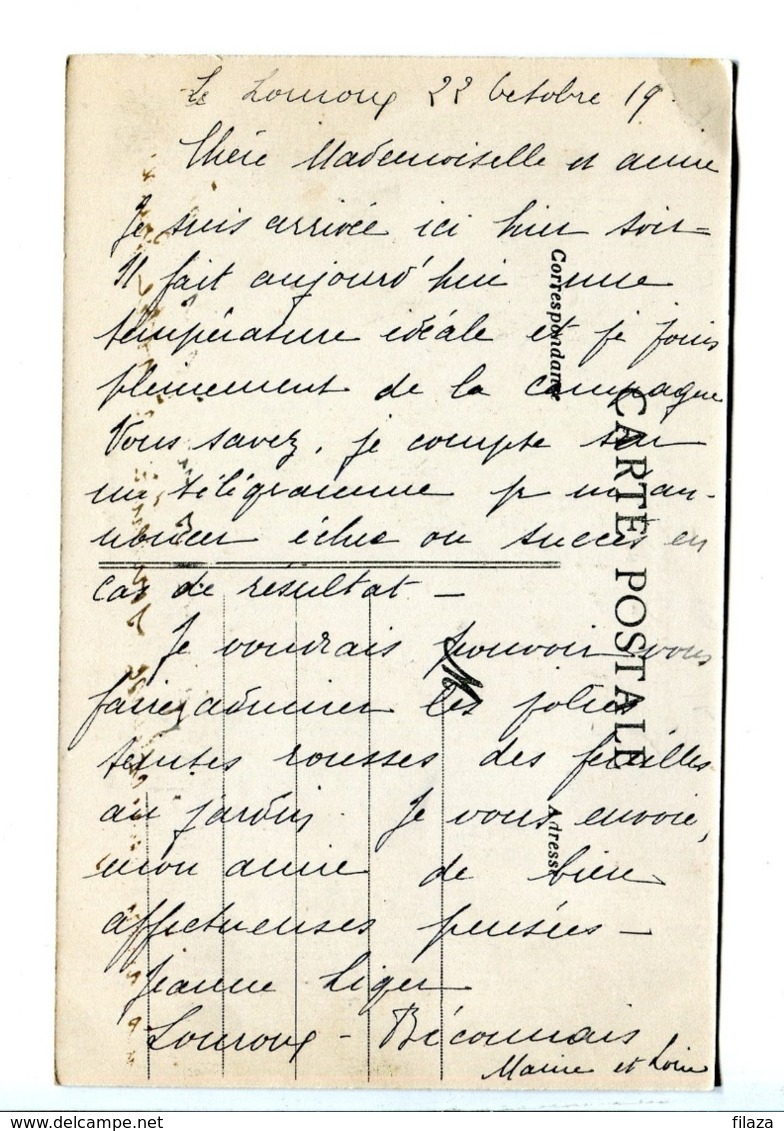 Le Louroux 22 Octobre 19
Chère Mademoiselle et amie
Je suis arrivée ici hier soir -
Il fait aujourd'hui une
température idéale et je jouis
pleinement de la campagne
Vous savez, je compte sur
un télégramme pr m'an-
noncer échec ou succès en
cas de résultat -
Je voudrais pouvoir vous
faire admirer les jolies
teintes rousses des feuilles
au jardin. Je vous envoie,
mon amie de bien
affectueuses pensées -
Jeanne Liger
Louroux - Béconnais
Maine et Loire
Correspondance
CARTE POSTALE
M
Adresse
delcampe.net
filaza